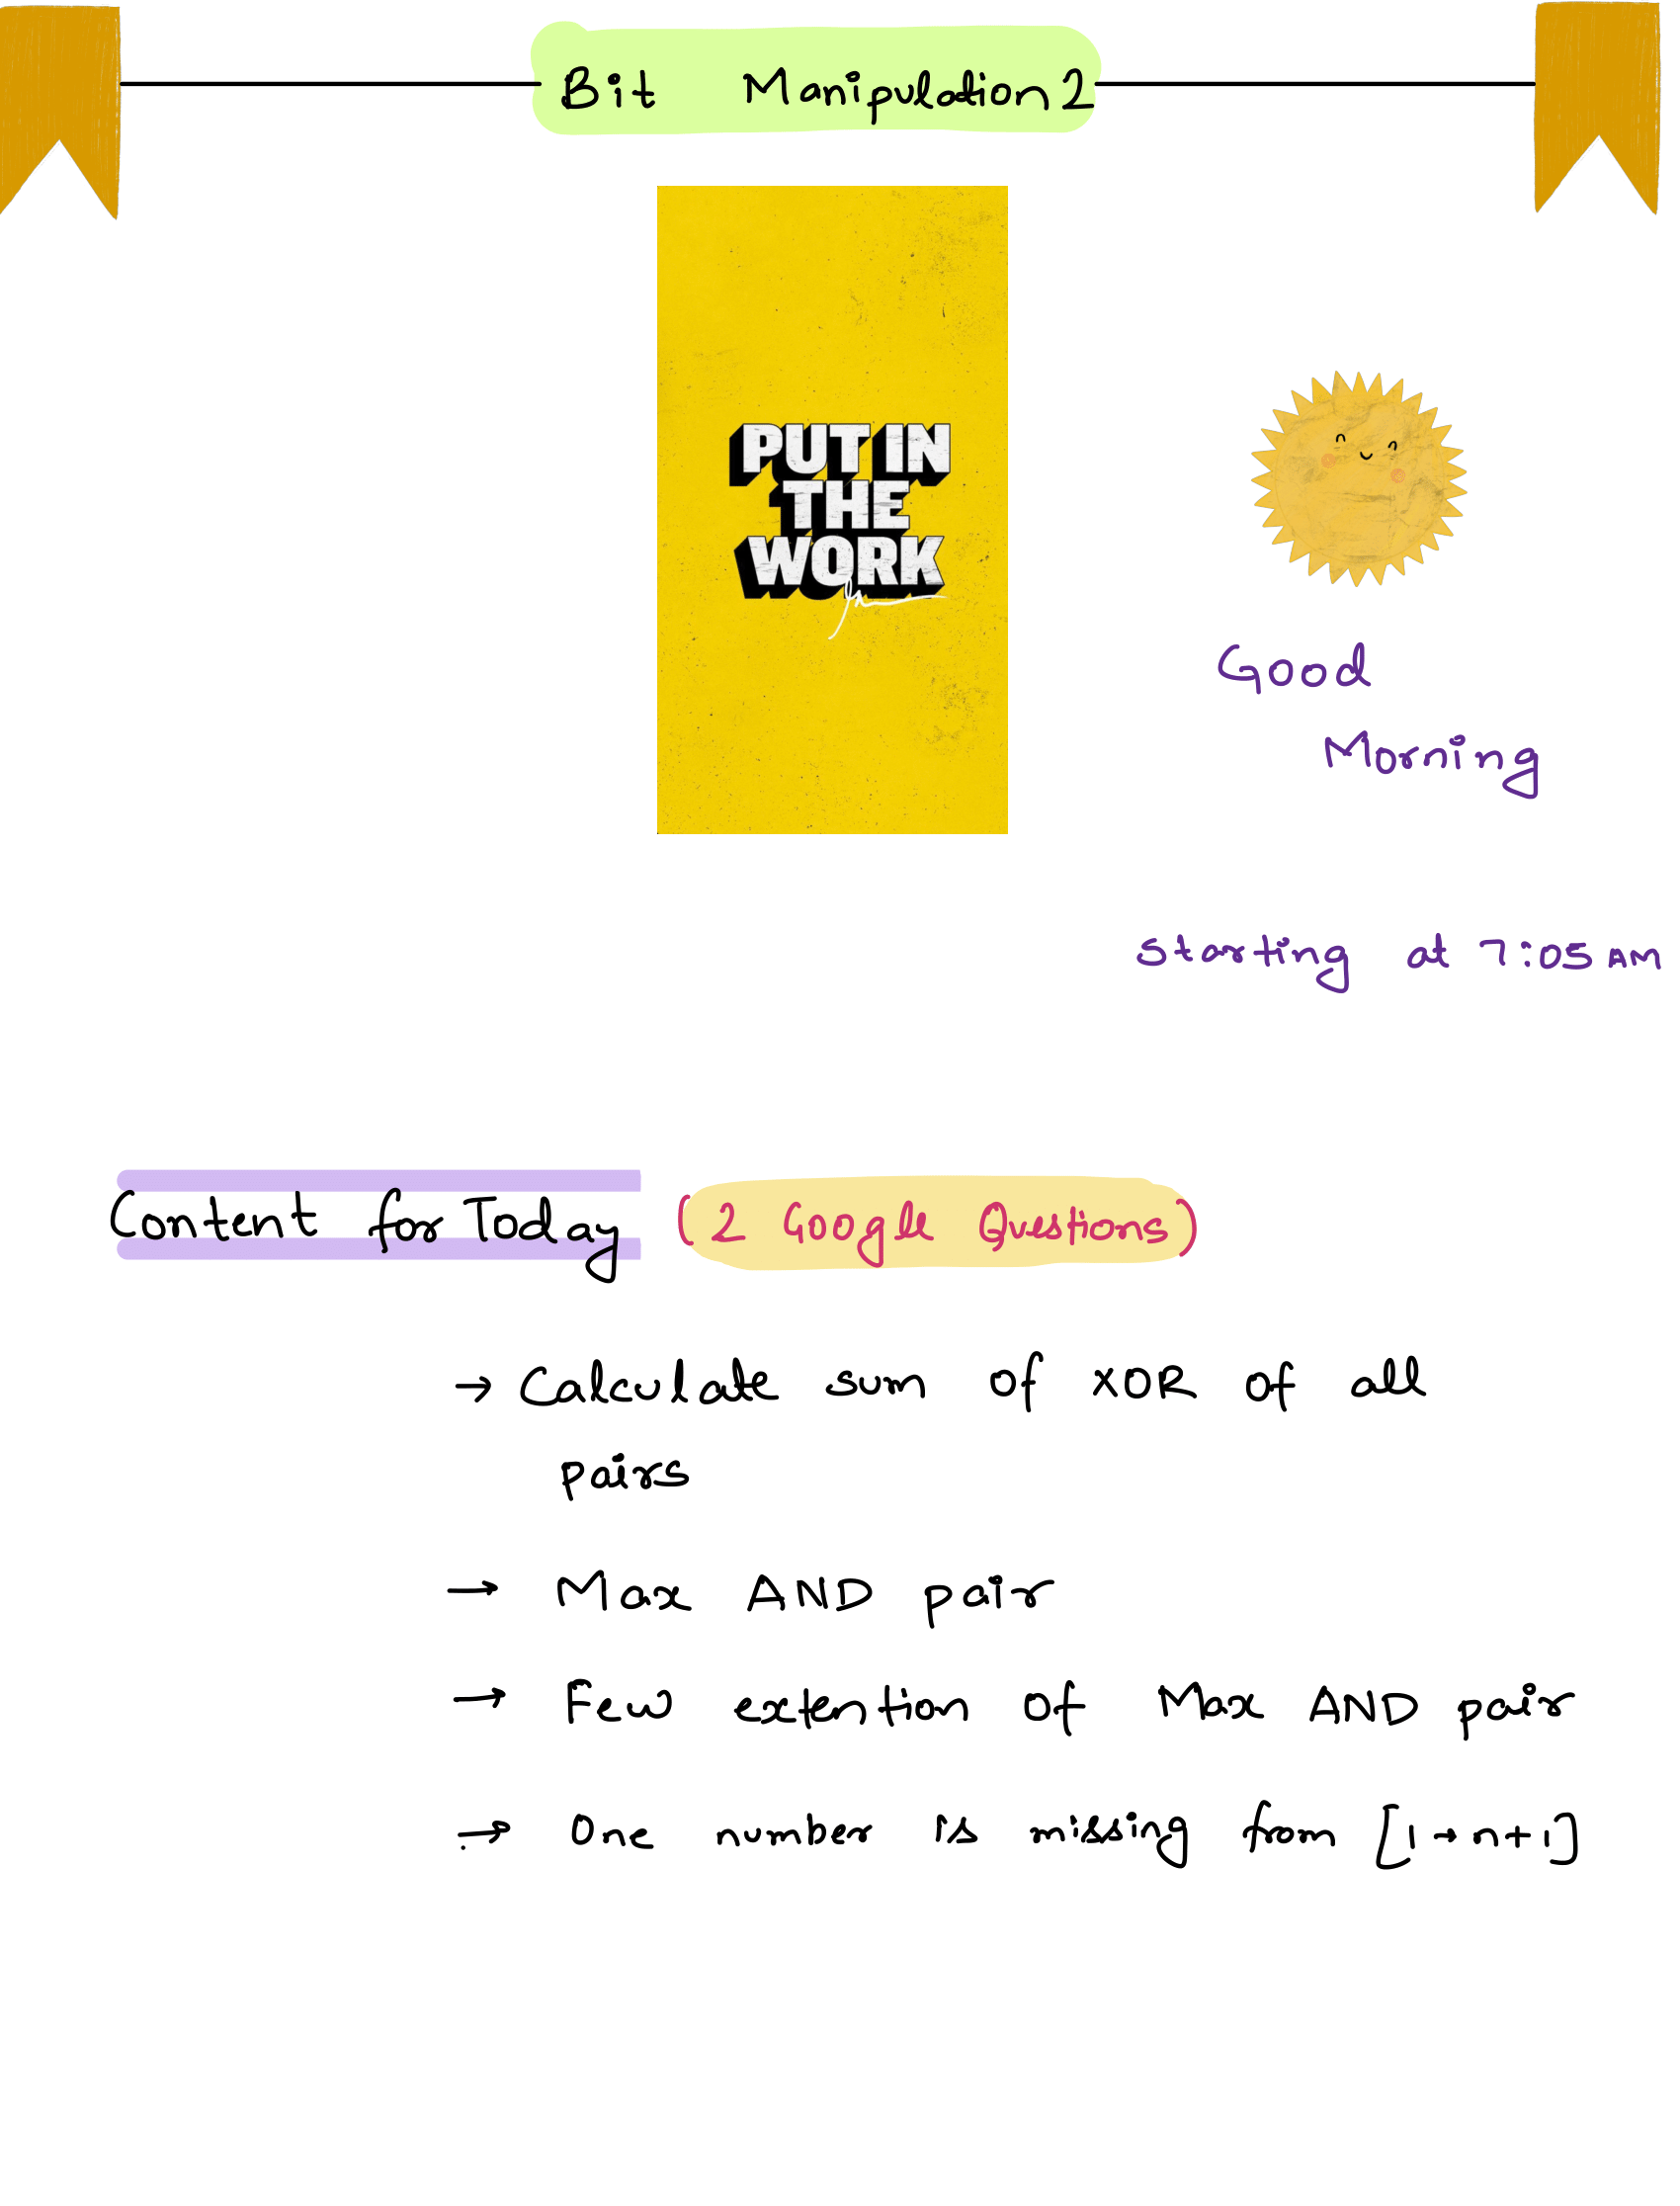 Bit Manipulation 2
PUT IN
THE
WORK
Good
Morning
starting at 7:05 AM
Content for Today (2 Google Questions)
→ Calculate sum of XOR of all
pairs
→ Max AND pair
→ Few extention of Max AND pair
→ One number is missing from [1 → n+1]